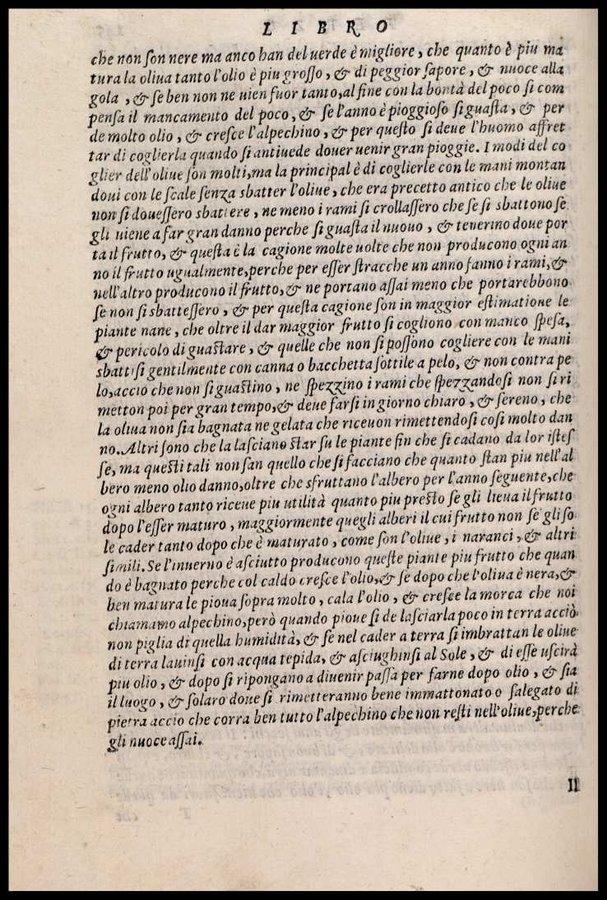 LIBRO
che non ſon nere ma anco han del uerde è migliore, che quanto è piu ma
tura la oliua tanto l'olio è piu groſſo, & di peggior ſapore, & nuoce alla
gola, & ſe ben non ne uien fuor tanto, al fine con la bontà del poco ſi com
penſa il mancamento del poco, & ſe l'anno è pioggioſo ſi guaſta, & per
de molto olio, & creſce l'alpechino, & per queſto ſi deue l'huomo affret
tar di coglierla quando ſi antiuede douer uenir gran pioggie. I modi del co
glier dell'oliue ſon molti, ma la principal è di coglierle con le mani montan
doui con le ſcale ſenza sbatter l'oliue, che era precetto antico che le oliue
non ſi doueſſero sbattere, ne meno i rami ſi crollaſſero che ſe ſi sbattono ſe
gli uiene a far gran danno perche ſi guaſta il nuouo, & tenerino doue por
ta il frutto, & queſta è la cagione molte uolte che non producono ogni an
no il frutto ugualmente, perche per eſſer ſtracche un anno fanno i rami, &
nell'altro producono il frutto, & ne portano aſſai meno che portarebbono
ſe non ſi sbatteſſero, & per queſta cagione ſon in maggior eſtimatione le
piante nane, che oltre il dar maggior frutto ſi cogliono con manco ſpeſa,
& pericolo di guaſtare, & quelle che non ſi poſſono cogliere con le mani
sbattiſi gentilmente con canna o bacchetta ſottile a pelo, & non contra pe
lo, accio che non ſi guaſtino, ne ſpezzino i rami che ſpezzandoſi non ſi ri
metton poi per gran tempo, & deue farſi in giorno chiaro, & ſereno, che
la oliua non ſia bagnata ne gelata che riceuon rimettendoſi coſi molto dan
no. Altri ſono che la laſciano ſtar ſu le piante fin che ſi cadano da lor iſteſ
ſe, ma queſti tali non ſan quello che ſi facciano che quanto ſtan piu nell'al
bero meno olio danno, oltre che sfruttano l'albero per l'anno ſeguente, che
ogni albero tanto riceue piu utilità quanto piu preſto ſe gli lieua il frutto
dopo l'eſſer maturo, maggiormente quegli alberi il cui frutto non ſe gli ſo
le cader tanto dopo che è maturato, come ſon l'oliue, i naranci, & altri
ſimili. Se l'inuerno è aſciutto producono queſte piante piu frutto che quan
do è bagnato perche col caldo creſce l'olio, & ſe dopo che l'oliua è nera, &
ben matura le pioua ſopra molto, cala l'olio, & creſce la morca che noi
chiamamo alpechino, però quando pioue ſi de laſciarla poco in terra acciò
non piglia di quella humidità, & ſe nel cader a terra ſi imbrattan le oliue
di terra lauinſi con acqua tepida, & aſciughinſi al Sole, & di eſſe uſcirà
piu olio, & dopo ſi ripongano a diuenir paſſa per farne dopo olio, & ſia
il luogo, & ſolaro doue ſi rimetteranno bene immattonato o ſalegato di
pietra accio che corra ben tutto l'alpechino che non reſti nell'oliue, perche
gli nuoce aſſai.
Il